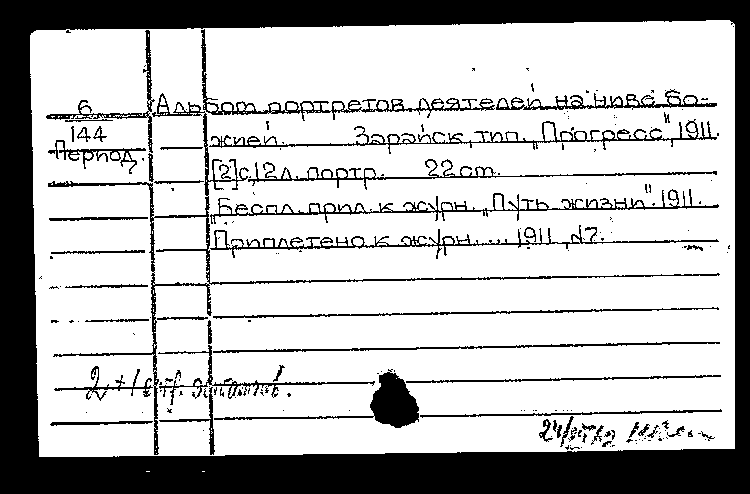 6
144
Период.
Альбом портретов деятелей на ниве бо-
жией. Зарайск, тип. „Прогресс", 1911.
[2]с,12л. портр. 22см.
„Беспл. прил. к журн. „Путь жизни". 1911.
Приплетено к журн. ... 1911, №7.
2 + 1